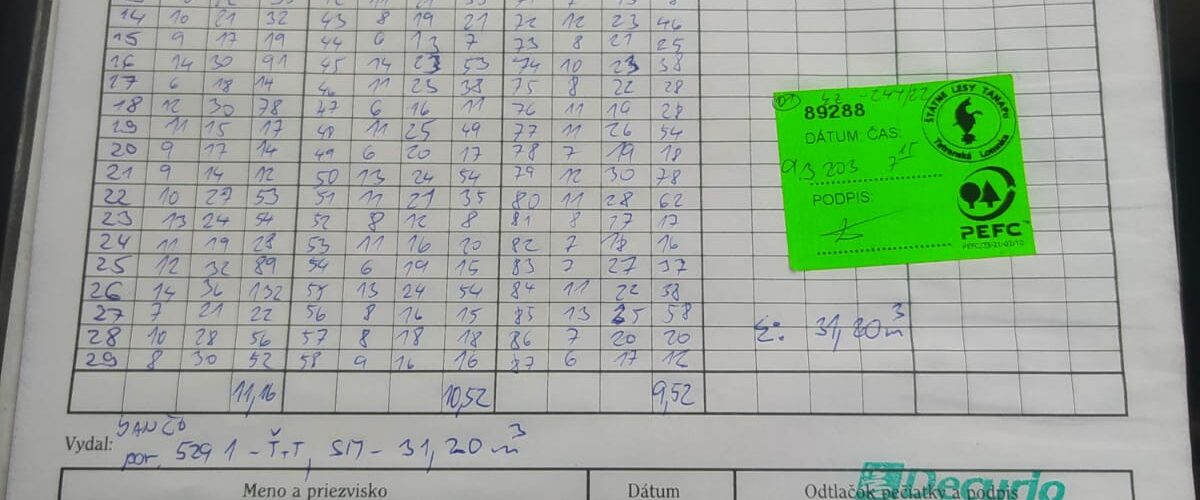 14 10 21 32 43 8 19 21 72 12 23 46
15 9 17 19 44 6 13 7 73 8 21 25
16 14 30 91 45 14 23 53 74 10 23 38
17 6 18 14 46 11 23 38 75 8 22 28
18 12 30 78 47 6 16 11 76 11 19 28
19 11 15 17 48 11 25 49 77 11 26 54
20 9 17 14 49 6 20 17 78 7 19 18
21 9 14 12 50 13 24 54 79 12 30 78
22 10 27 53 51 11 21 35 80 11 28 62
23 13 24 54 52 8 12 8 81 8 17 17
24 11 19 28 53 11 16 20 82 7 18 16
25 12 32 89 54 6 19 15 83 7 27 37
26 14 36 132 55 13 24 54 84 11 22 38
27 7 21 22 56 8 16 15 85 13 25 58
28 10 28 56 57 8 18 18 86 7 20 20
29 8 30 52 58 9 16 16 87 6 17 12
11,16 10,52 9,52
89288
DÁTUM: ČAS:
7 15
PODPIS:
ŠTÁTNE LESY TANAPu
Tatranská Lomnica
PEFC™
Σ: 31,20 m³
Vydal: JANČO
por. 529 1 - Ť-T, SM - 31,20 m³
Meno a priezvisko Dátum Odtlačok pečiatky a podpis
Decurio